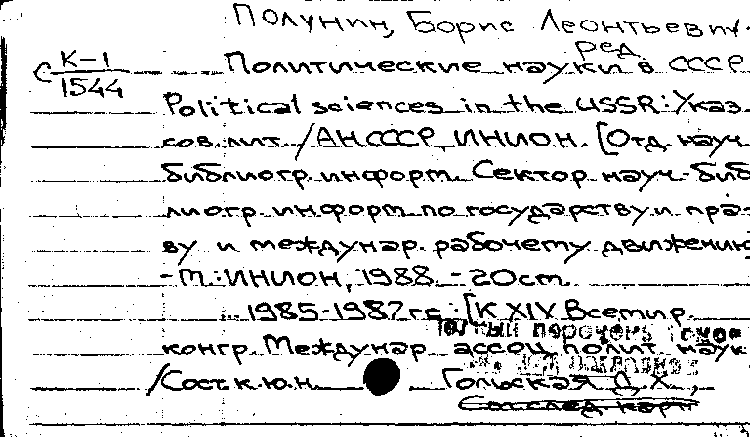 Полунин, Борис Леонтьевич.
ред.
С К-1
1544
Политические науки в СССР
Political sciences in the USSR: Указ.
сов. лит. / АН СССР, ИНИОН. [Отд. науч.
библиогр. информ. Сектор науч.-биб
лиогр. информ. по государству и пра-
ву и междунар. рабочему движению
- М.: ИНИОН, 1988. - 20 см.
1985-1987 гг.: [К XIV Всемир.
конгр. Междунар. ассоц. полит. наук
/ Сост. к.ю.н. Гольская Д. Х.,